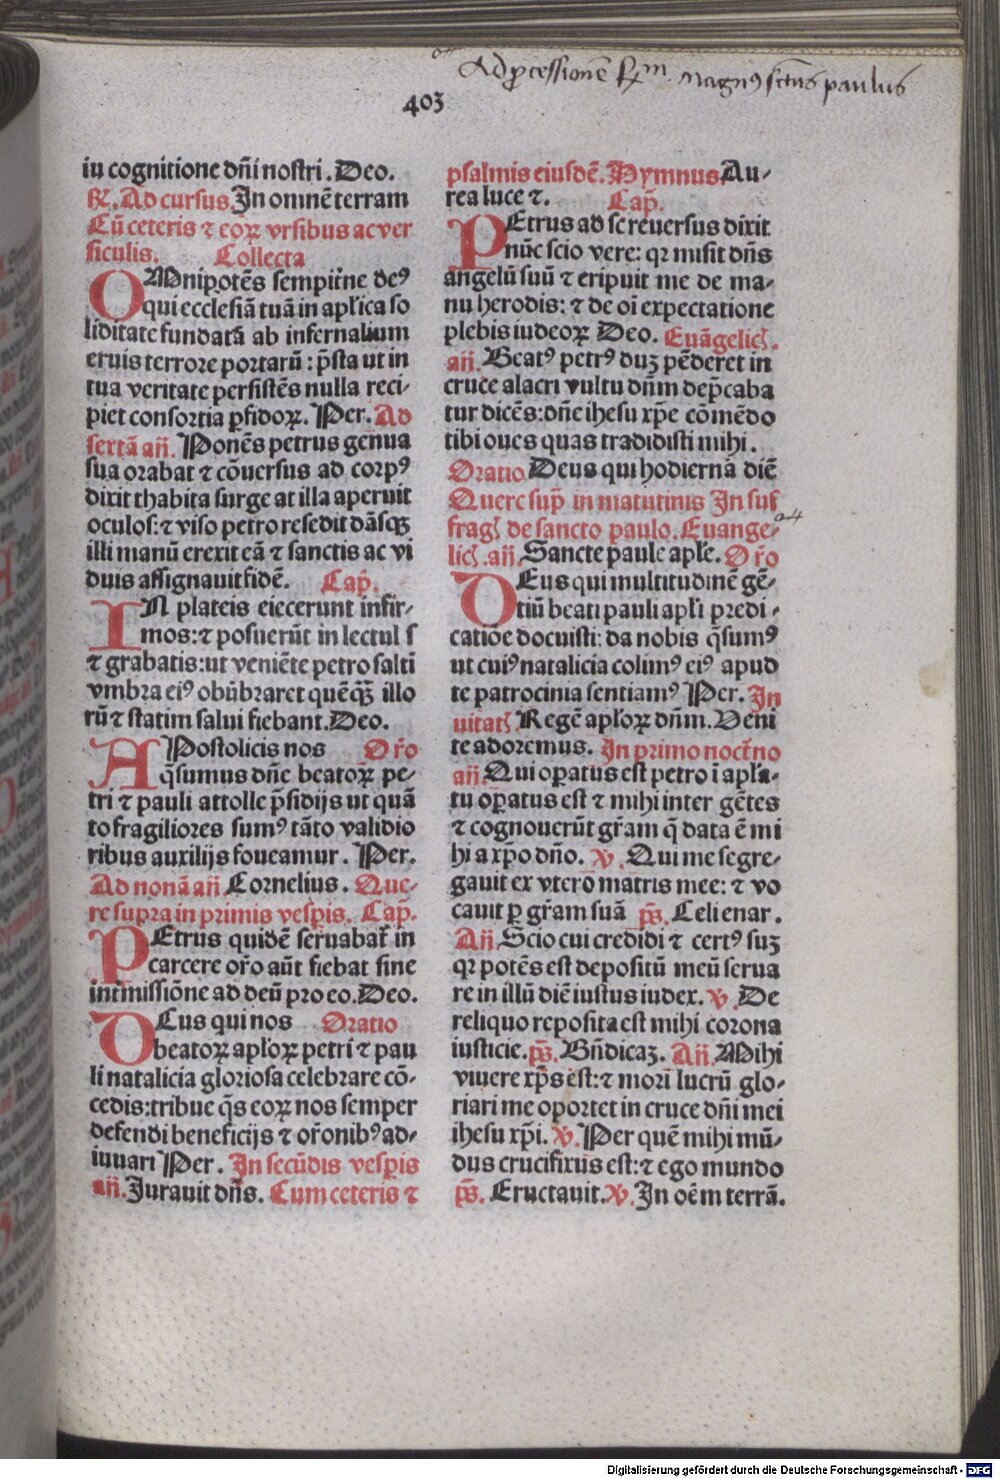 Ad ꝓcessionē R̃m. Magnꝰ sctūs paulus
403
iu cognitione dn̄i nostri. Deo.
R̃. Ad cursus In omnē terram
Cū ceteris ⁊ eoꝝ vrsibus ac ver
siculis. Collecta
OMnipotēs sempit̄ne deꝰ
qui ecclesiā tuā in apl'ica so
liditate fundatā ab infernalium
eruis terrore portarū: p̄sta ut in
tua veritate persistēs nulla reci-
piet consortia ꝑfidoꝝ. Per. Ad
sextā añ. Ponēs petrus genua
sua orabat ⁊ cōuersus ad corpꝰ
dixit thabita surge at illa aperuit
oculos: ⁊ viso petro resedit dāsqꝫ
illi manū erexit eā ⁊ sanctis ac vi
duis assignauit fidē. Cap̄.
IN plateis eiecerunt infir-
mos: ⁊ posuerūt in lectul s
⁊ grabatis: ut veniēte petro saltī
vmbra eiꝰ obūbraret quēqꝫ illo
rū ⁊ statim salui fiebant. Deo.
APostolicis nos Or̄o
q̄sumus dn̄e beatoꝝ pe-
tri ⁊ pauli attolle p̄sidijs ut quā
to fragiliores sumꝰ tāto validio
ribus auxilijs foueamur. Per.
Ad nonā añ Cornelius. Que-
re supra in primis vesꝑis. Cap̄.
PEtrus quidē seruabat̄ in
carcere or̄o aūt fiebat sine
int̄missiōne ad deū pro eo. Deo.
DEus qui nos Oratio
beatoꝝ apl'oꝝ petri ⁊ pau
li natalicia gloriosa celebrare cō-
cedis: tribue q̄s eoꝝ nos semper
defendi beneficijs ⁊ or̄onibꝰ ad-
iuuari Per. In secūdis vesꝑis
añ. Jurauit dn̄s. Cum ceteris ⁊
psalmis eiusdē. Hymnus. Au-
rea luce ⁊. Cap̄.
PEtrus ad se reuersus dixit
nūc scio vere: qꝛ misit dn̄s
angelū suū ⁊ eripuit me de ma-
nu herodis: ⁊ de oī expectatione
plebis iudeoꝝ Deo. Euāgelicꝭ.
añ. Beatꝰ petrꝰ duꝫ pēderet in
cruce alacri vultu dn̄m dep̄caba
tur dicēs: dn̄e ihesu xp̄e cōmēdo
tibi oues quas tradidisti mihi.
Oratio Deus qui hodiernā diē
Quere sup̄ in matutinis In suf
fragꝭ de sancto paulo. Euange-
licꝭ. añ. Sancte paule apl'e. Or̄o
DEus qui multitudinē gē-
tiū beati pauli apl'i predi-
catiōe docuisti: da nobis q̄sumꝰ
ut cuiꝰ natalicia colimꝰ eiꝰ apud
te patrocinia sentiamꝰ Per. In
uitatꝭ Regē apl'oꝝ dn̄m. Veni
te adoremus. In primo noct̄no
añ. Qui oꝑatus est petro ī apl'a-
tu oꝑatus est ⁊ mihi inter gētes
⁊ cognouerūt gr̄am q̄ data ē mi
hi a xp̄o dn̄o. ꝟ. Qui me segre-
gauit ex vtero matris mee: ⁊ vo
cauit ꝑ gr̄am suā p̄s. Celi enar.
Añ. Scio cui credidi ⁊ certꝰ suꝫ
qꝛ potēs est depositū meū serua
re in illū diē iustus iudex. ꝟ. De
reliquo reposita est mihi corona
iusticie. p̄s. Bn̄dicaꝫ. Añ. Mihi
viuere xp̄s est: ⁊ mori lucrū glo-
riari me oportet in cruce dn̄i mei
ihesu xp̄i. ꝟ. Per quē mihi mū-
dus crucifixus est: ⁊ ego mundo
p̄s. Eructauit. ꝟ. In oēm terrā.
Digitalisierung gefördert durch die Deutsche Forschungsgemeinschaft - DFG